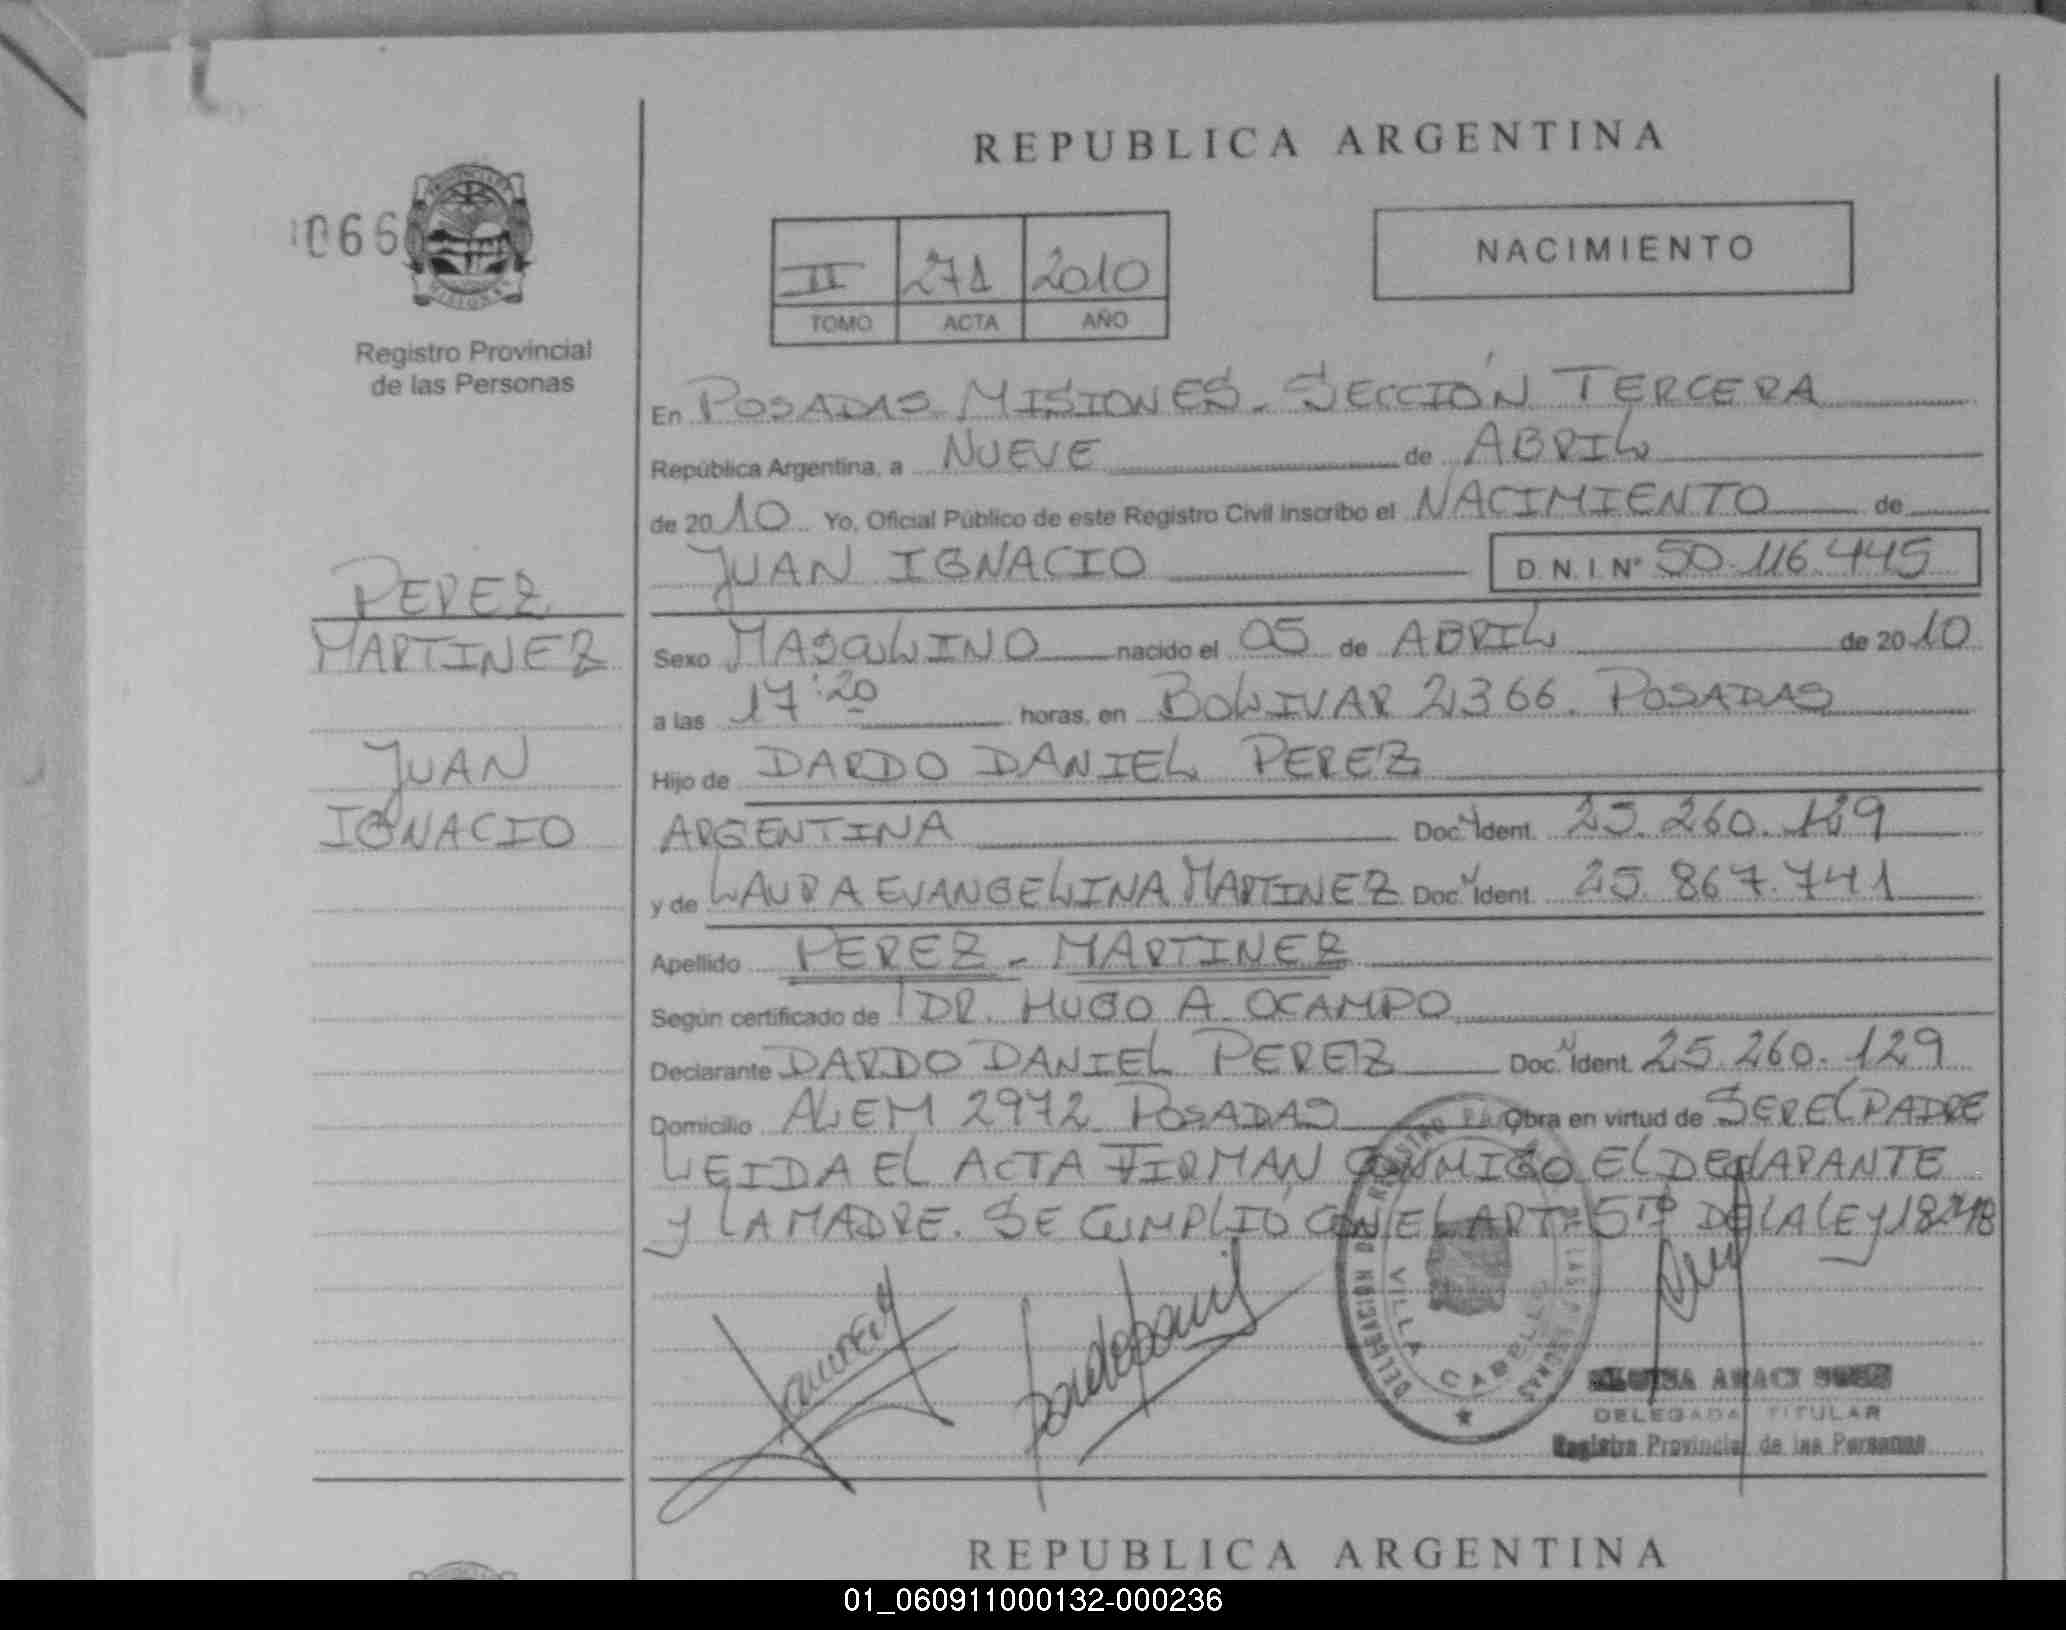 REPUBLICA ARGENTINA
066
PROVINCIA DE MISIONES
Registro Provincial
de las Personas
II 271 2010
TOMO ACTA AÑO
NACIMIENTO
En POSADAS MISIONES. SECCIÓN TERCERA
República Argentina, a NUEVE de ABRIL
de 2010 Yo, Oficial Público de este Registro Civil inscribo el NACIMIENTO de
JUAN IGNACIO D.N.I. Nº 50.116.445
PEREZ
MARTINEZ
JUAN
IGNACIO
Sexo MASCULINO nacido el 05 de ABRIL de 2010
a las 17:20 horas, en BOLIVAR 2366. POSADAS
Hijo de DARDO DANIEL PEREZ
ARGENTINA Doc. y Ident. 25.260.129
y de LAURA EVANGELINA MARTINEZ Doc. N Ident. 25.867.741
Apellido PEREZ - MARTINEZ
Según certificado de DR. HUGO A. OCAMPO
Declarante DARDO DANIEL PEREZ Doc. N Ident. 25.260.129
Domicilio ALEM 2972 POSADAS Obra en virtud de SER EL PADRE
LEIDA EL ACTA FIRMAN CONMIGO EL DECLARANTE
Y LA MADRE. SE CUMPLIÓ CON EL ART= 5TO DE LA LEY 18248
VILLA CABELLO
DELEGADA TITULAR
Registro Provincial de las Personas
REPUBLICA ARGENTINA
01_060911000132-000236